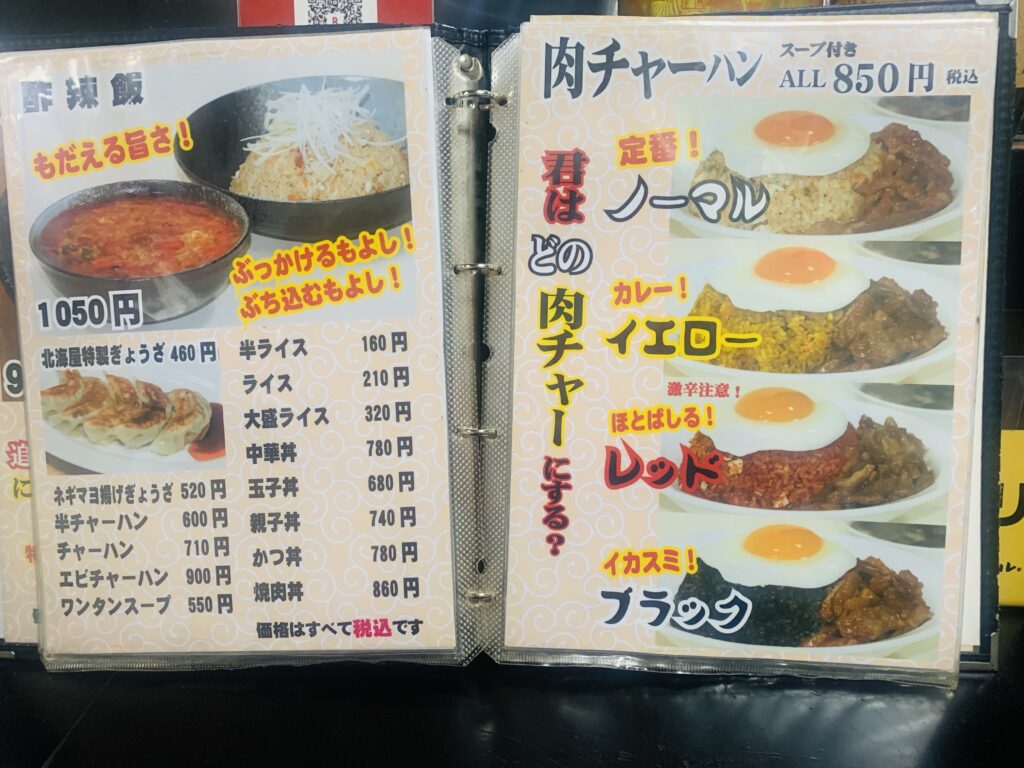 酢辣飯
もだえる旨さ！
ぶっかけるもよし！
ぶち込むもよし！
1050円
北海屋特製ぎょうざ 460円
ネギマヨ揚げぎょうざ 520円
半チャーハン 600円
チャーハン 710円
エビチャーハン 900円
ワンタンスープ 550円
半ライス 160円
ライス 210円
大盛ライス 320円
中華丼 780円
玉子丼 680円
親子丼 740円
かつ丼 780円
焼肉丼 860円
価格はすべて税込です
肉チャーハン
スープ付き
ALL 850円 税込
君はどの肉チャーにする？
定番！
ノーマル
カレー！
イエロー
激辛注意！
ほとばしる！
レッド
イカスミ！
ブラック